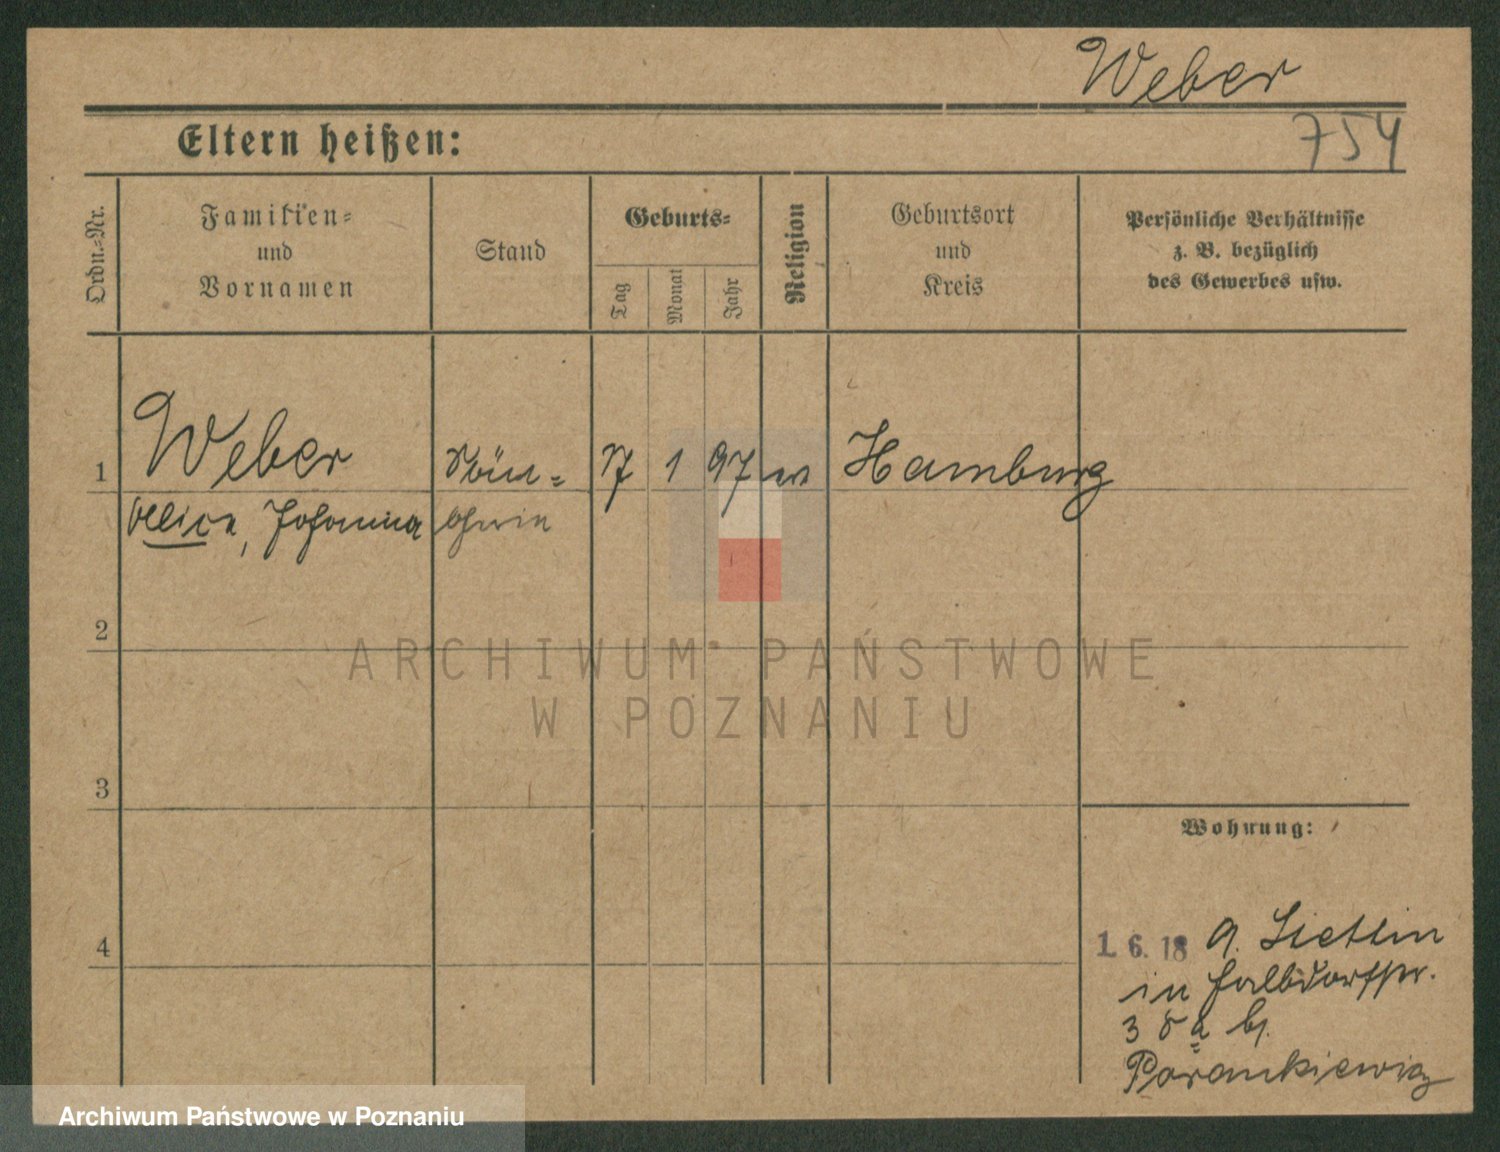 Weber
Eltern heißen:
754
Ordn.-Nr.
Familien-
und
Vornamen
Stand
Geburts-
Tag
Monat
Jahr
Religion
Geburtsort
und
Kreis
Persönliche Verhältnisse
z. B. bezüglich
des Gewerbes usw.
1
Weber
17 1 97
Hamburg
Alice, Johanna
2
ARCHIWUM PAŃSTWOWE
W POZNANIU
3
Wohnung:
4
1. 6. 18
in
3
Archiwum Państwowe w Poznaniu